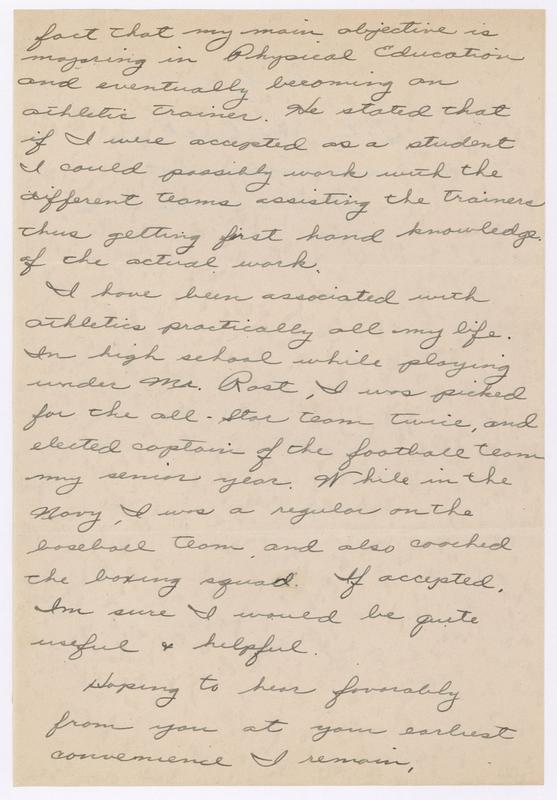 fact that my main objective is
majoring in Physical Education
and eventually becoming an
athletic trainer. He stated that
if I were accepted as a student
I could possibly work with the
different teams assisting the trainers
thus getting first hand knowledge
of the actual work.
I have been associated with
athletics practically all my life.
In high school while playing
under Mr. Rast, I was picked
for the all-Star team twice, and
elected captain of the football team
my senior year. While in the
Navy, I was a regular on the
baseball team, and also coached
the boxing squad. If accepted,
Im sure I would be quite
useful & helpful.
Hoping to hear favorably
from you at your earliest
convenience I remain,